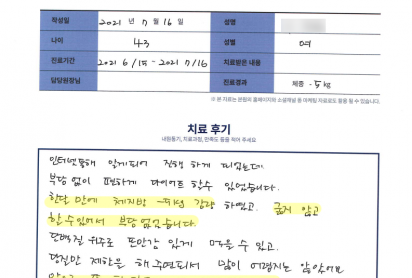 작성일 2021 년 7 월 16 일 성명
나이 43 성별 여
진료기간 2021 6/15 - 2021 7/16 치료받은 내용
담당원장님 진료결과 체중 -5kg
※ 본 치료는 한원의 홈페이지와 소셜채널 등 마케팅 자료로도 활용 될 수 있습니다.
치료 후기
내원동기, 치료과정, 만족도 등을 적어 주세요
인터넷통해 알게되어 진행 하게 되었는데
부담 없이 편하게 다이어트 할수 있었습니다.
한달 만에 체지방 감량 하였고. 굶지 않고
할수있어서 부담 없었습니다.
단백질 위주로 포만감 있게 먹을 수 있고.
당질만 제한을 해 주면되서 많이 어렵지는 않았어요